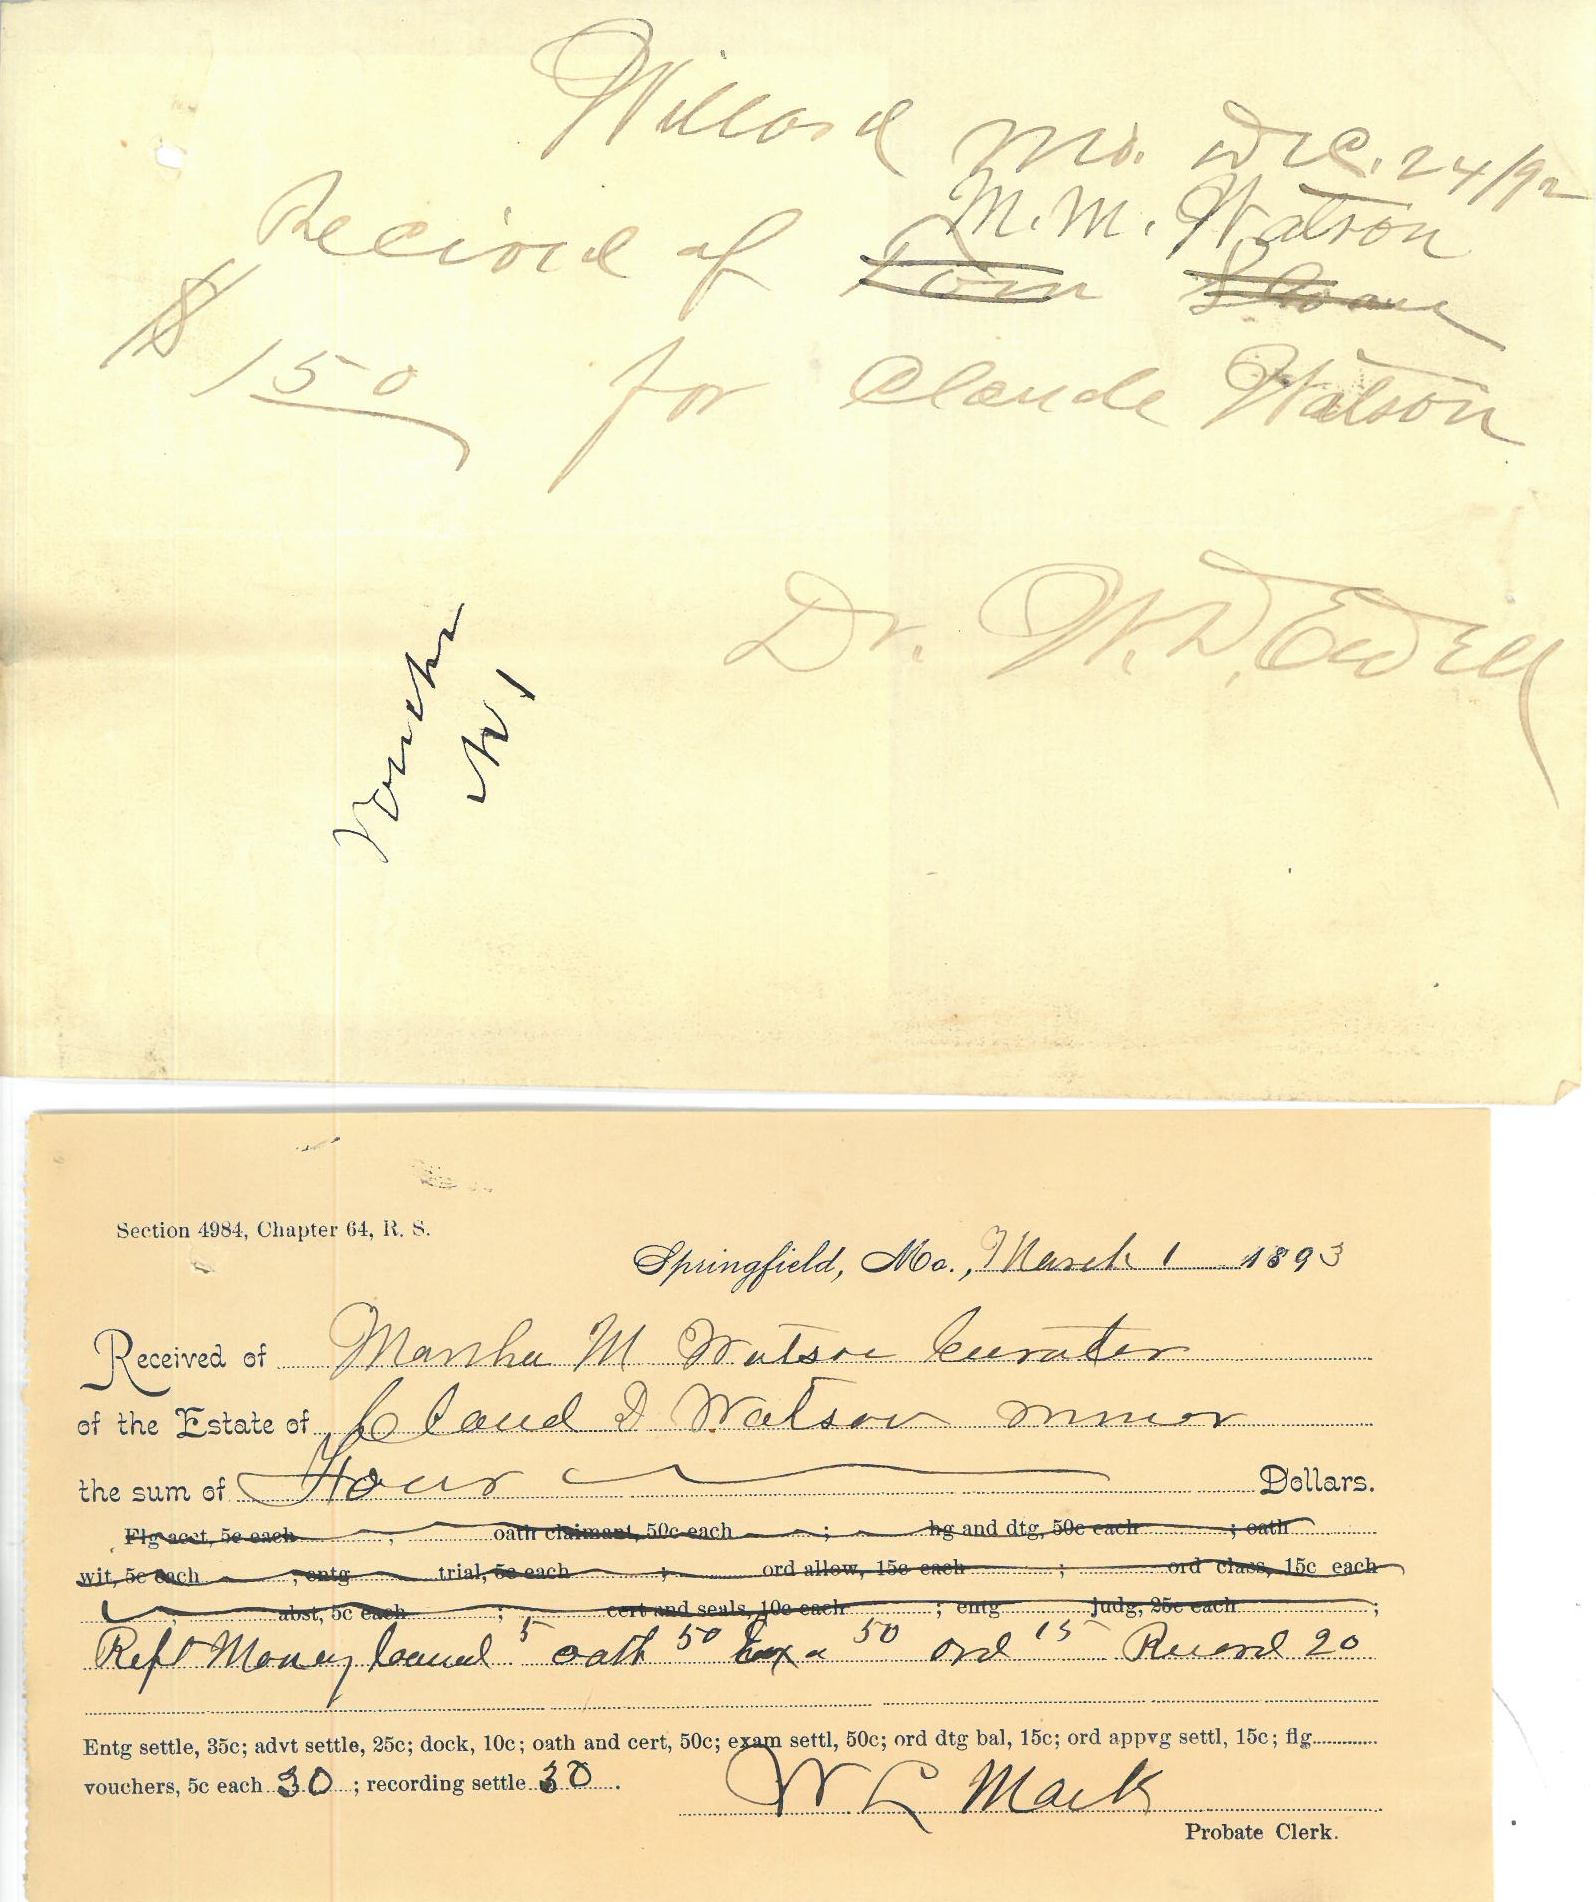 Willard Mo. Dec. 24/92
M. M. Watson
Recieved of Tom Sloane
$150 for Claude Watson
Dr. W. D. Ewell
Voucher
No 1
Section 4984, Chapter 64, R. S.
Springfield, Mo., March 1 1893
Received of Martha M Watson Curator
of the Estate of Claud D Watson minor
the sum of Four Dollars.
Flg acct, 5c each ; oath claimant, 50c each ; hg and dtg, 50c each ; oath
wit, 5c each ; entg trial, 5c each ; ord allow, 15c each ; ord class, 15c each
; abst, 5c each ; cert and seals, 10c each ; entg judg, 25c each ;
Rept Money loaned 5 oath 50 Exa 50 ord 15 Record 20
Entg settle, 35c; advt settle, 25c; dock, 10c; oath and cert, 50c; exam settl, 50c; ord dtg bal, 15c; ord appvg settl, 15c; flg
vouchers, 5c each 30 ; recording settle 30 .
W L Mack
Probate Clerk.